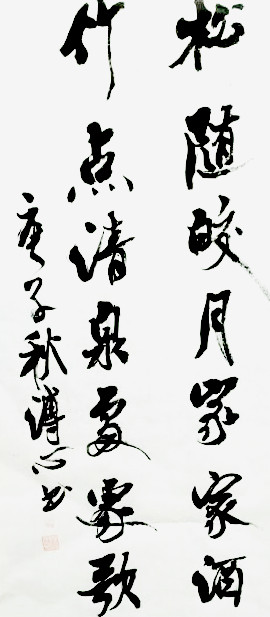 松随皎月家家酒
竹点清泉处处歌
庚子秋博心书